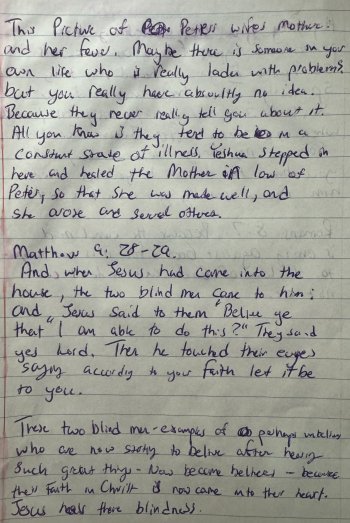 This Picture of Peters wifes Mother:
and her fever. Maybe there is someone in your
own life who is really laden with problems,
but you really have absoultly no idea.
Because they never really tell you about it.
All you know is they tend to be in a
constant state of illness. Yeshua stepped in
here and healed the Mother in low of
Peter, so that she was made well, and
she arose and served others.
Matthew 9: 28-29.
And when Jesus had come into the
house, the two blind men came to him;
and "Jesus said to them "Belive ye
that I am able to do this?" They said
yes Lord. Then he touched their eyes
saying according to your faith let it be
to you.
These two blind men - examples of perhaps
who are now starting to belive after hearing
such great things - Now become belivers - because
their faith in Christ is now came into their heart.
Jesus heals there blindness.